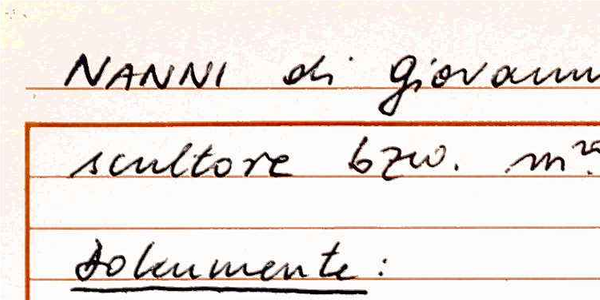 NANNI di Giovanni
scultore bzw. m
Dokumente: